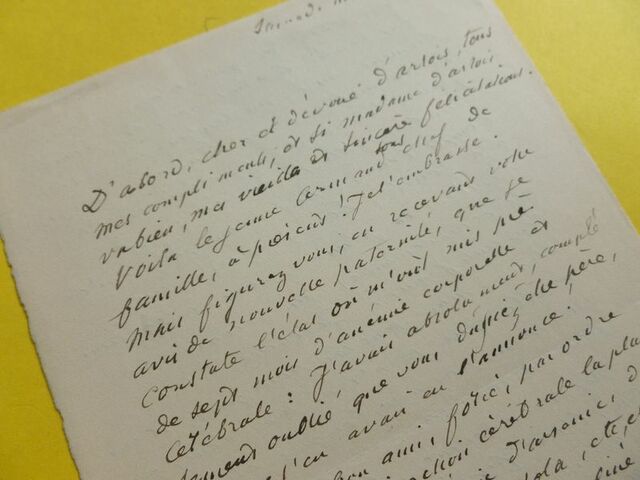 Samedi
D'abord, cher et dévoué d'artois, tous
mes compliments, et si madame d'artois
va bien, mes vieilles et sincères félicitations.
Voilà le jeune Armand sous chef de
famille, à présent! Je l'embrasse.
Mais figurez vous, en recevant votre
avis de nouvelle paternité, que je
constate l'état où m'ont mis près
de sept mois d'anémie corporelle et
cérébrale: j'avais absolument, complè
tement oublié que vous dussiez être père,
j'en avais eu l'annonce!
bon ami, forcé, par ordre
cérébrale la plus
d'arsenic, d
etc, e